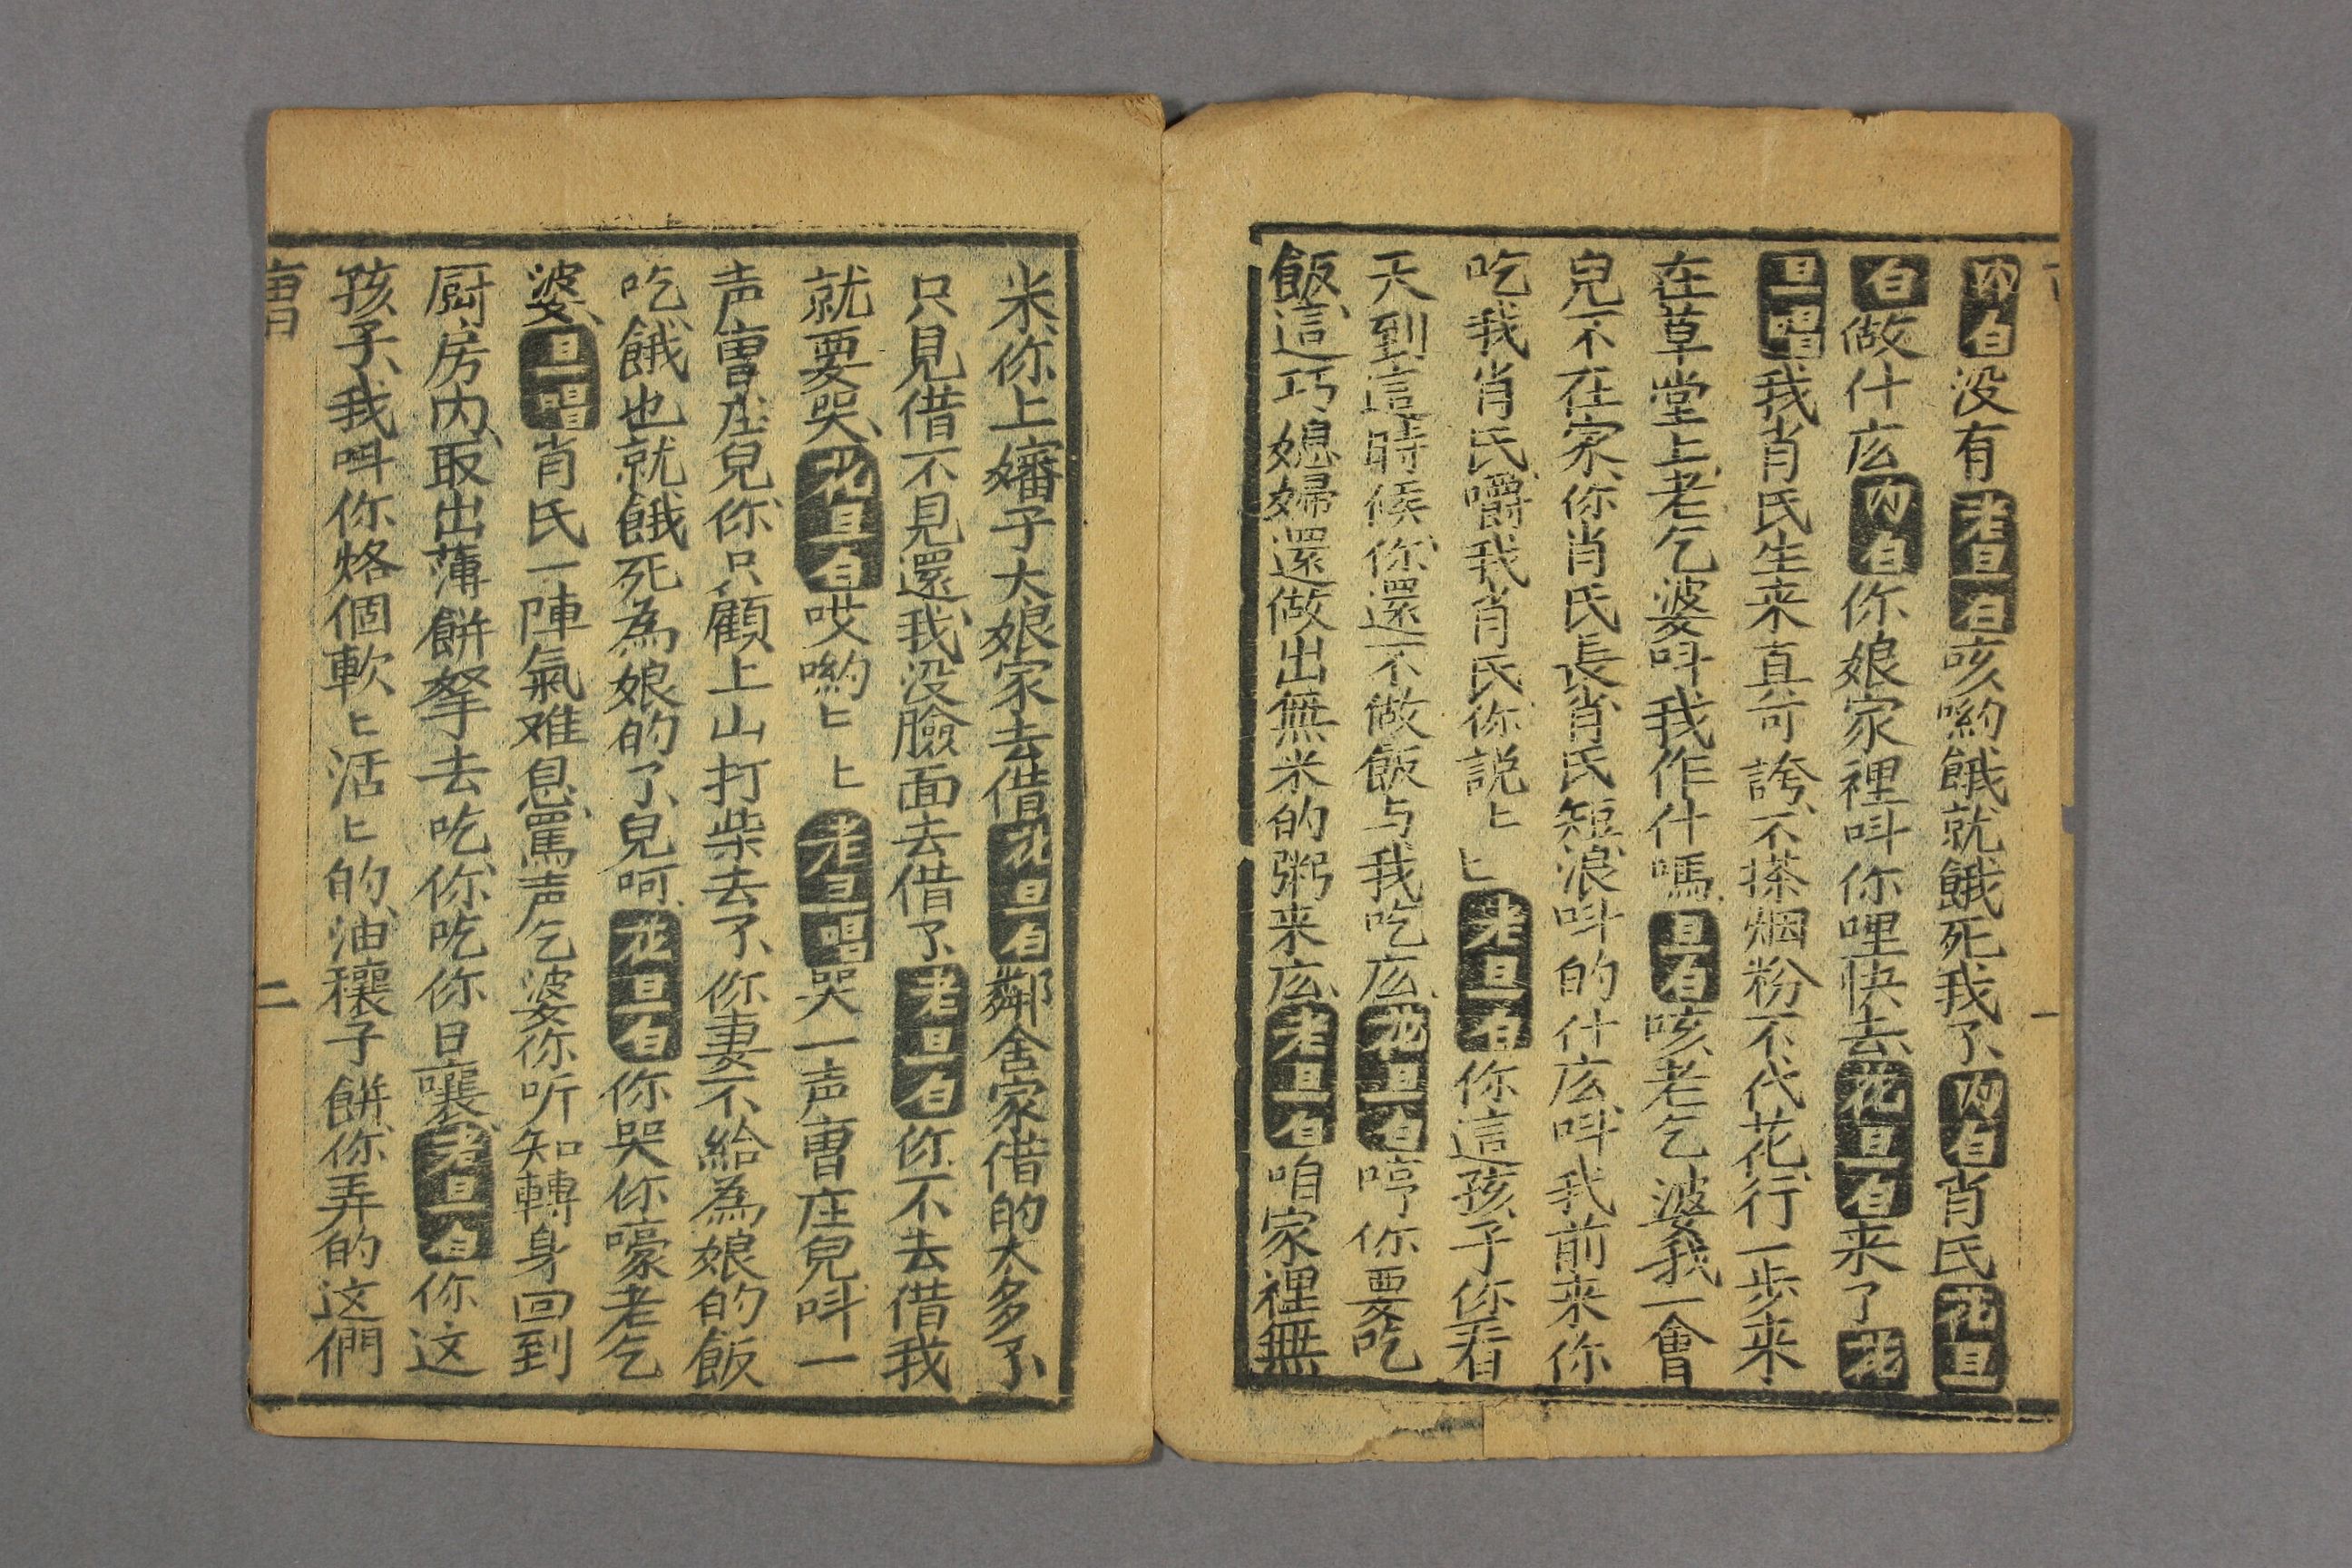 内白没有老旦白咳喲餓就餓死我了内白肖氏花旦
白做什庅内白你娘家裡呌你哩快去花旦白来了花
旦唱我肖氏生来真可誇不搽烟粉不代花行一步来
在草堂上老乞婆呌我作什嗎旦白咳老乞婆我一會
兒不在家你肖氏長肖氏短浪呌的什庅呌我前来你
吃我肖氏嚼我肖氏你説匕匕老旦白你這孩子你看
天到這時候你還不做飯与我吃庅花旦白哼你要吃
飯這巧媳婦還做出無米的粥来庅老旦白咱家裡無
米你上嬸子大娘家去借花旦白鄰舍家借的太多了
只見借不見還我没臉面去借了老旦白你不去借我
就要哭花旦白哎喲匕匕老旦唱哭一声曹庄兒呌一
声曹庄兒你只顧上山打柴去了你妻不給為娘的飯
吃餓也就餓死為娘的了兒呵花旦白你哭你嚎老乞
婆旦唱肖氏一陣氣难息罵声乞婆你听知轉身回到
厨房内取出薄餅拏去吃你吃你日囊老旦白你这
孩子我呌你烙個軟匕活匕的油穰子餅你弄的这們
曹
二